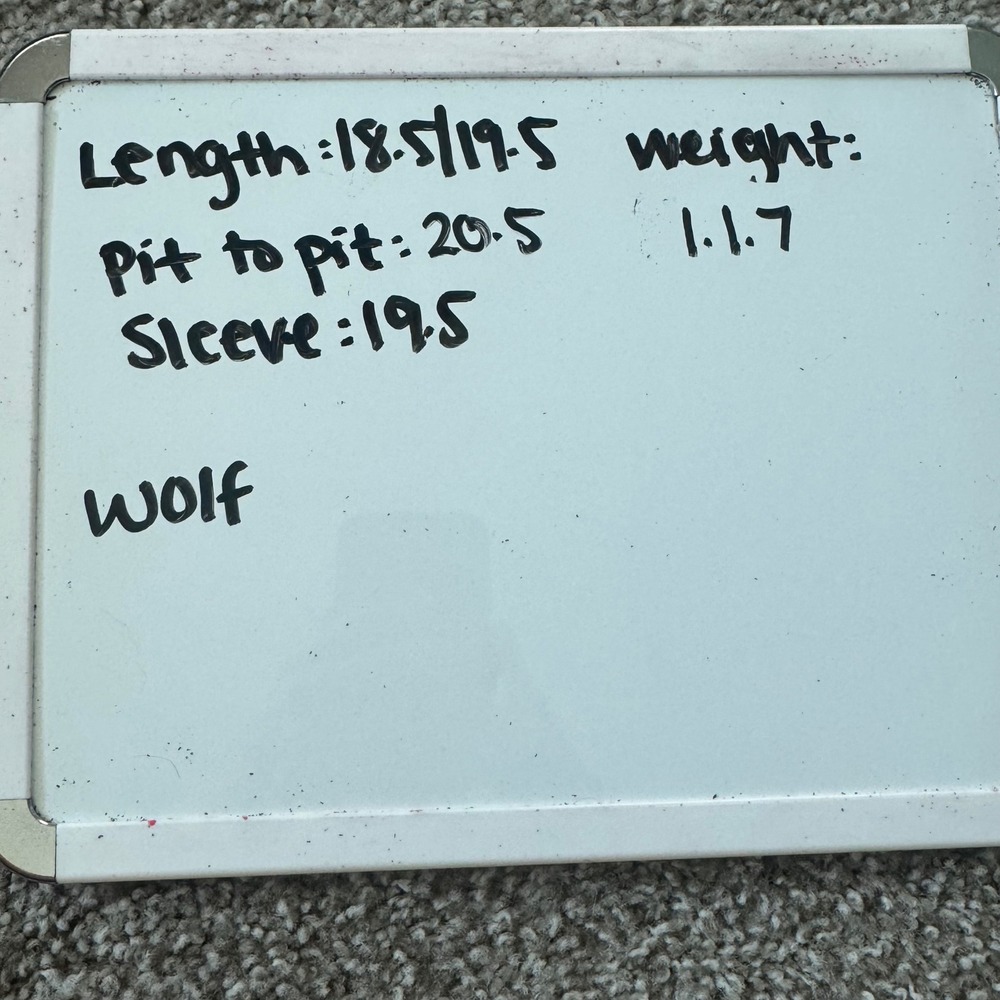 Length: 18.5/19.5
Pit to pit: 20.5
Sleeve: 19.5
Wolf
Weight:
1.1.7